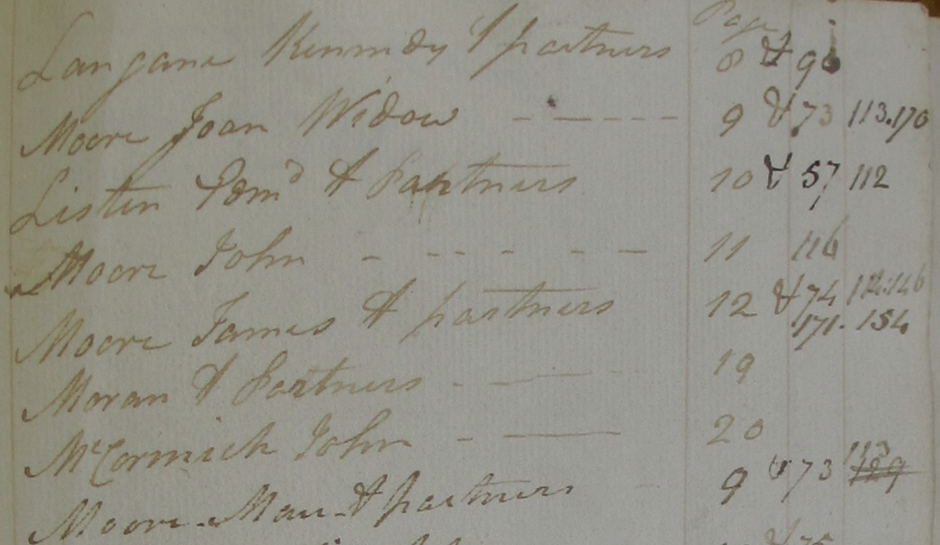 Page
Langane Kennedy & partners 8 & 96
Moore Joan Widow 9 & 73 113.170
Listin Edmd & Partners 10 & 57 112
Moore John 11 116
Moore James & partners 12 & 74 114.146
171. 154
Moran & Partners 19
McCormick John 20
113
Moore Mau & partners 9 & 73 129
& 75